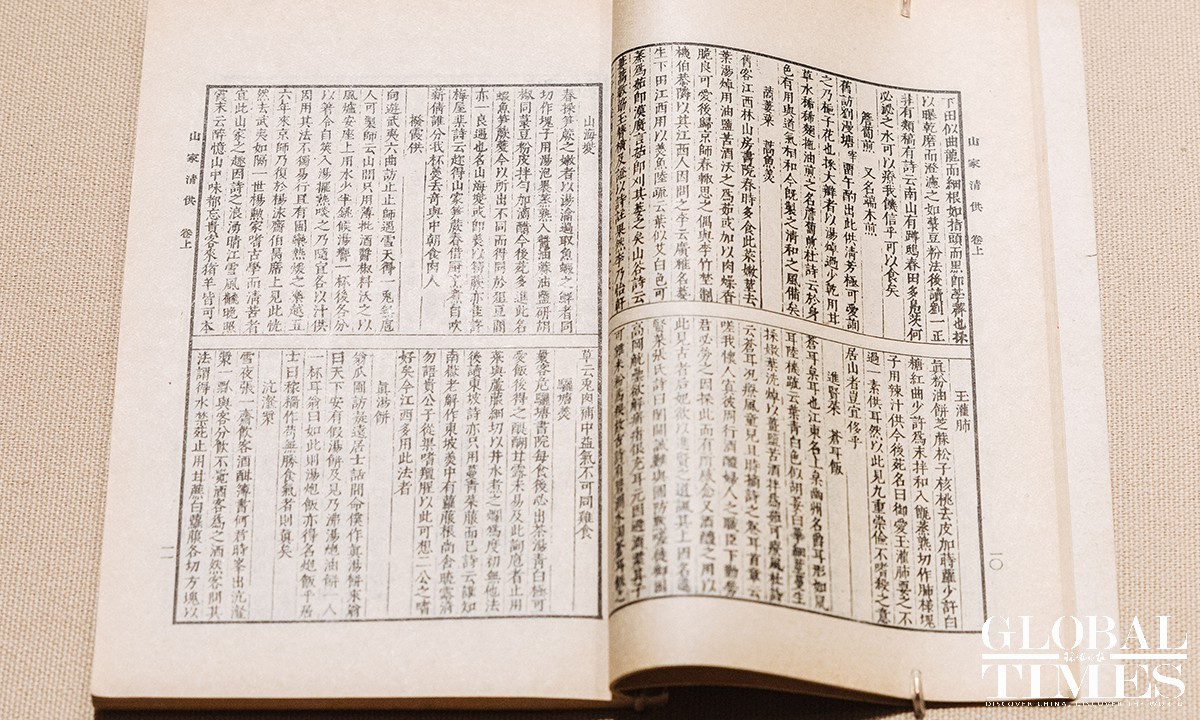 下田似曲龍而細根如指頭而黑即荸薺也採
以曝乾磨而澄濾之如菉豆粉法後讀劉一正
非有類稿有詩云南山有蹲鴟春田多鳧茨何
必泌之水可以療我饑信乎可以食矣
簷蔔煎 又名端木煎
舊訪劉漫塘宰留午酌出此供清芳極可愛詢
之乃梔子花也採大瓣者以湯焯過少乾用甘
草水稀稀麵拖油煎之名簷蔔煎杜詩云於身
色有用與道氣相和今既製之清和之風備矣
蒿蔞菜 蒿魚羹
舊客江西林山房書院春時多食此菜嫩莖去
葉湯焯用油鹽苦酒沃之為茹或加以肉燥香
脆良可愛後歸京師春輒思之偶與李竹埜制
機伯恭鄰以其江西人因問之李云廣雅名蔞
生下田江西用以羹魚陸疏云葉似艾白色可
蒸為茹即漢廣言刈其蔞之矣山谷詩云
蔞蒿數筯玉簪橫及證以詩註果然李乃怡軒
玉灌肺
真粉油餅芝蔴松子核桃去皮加時蘿少許白
糖紅曲少許為末拌和入甑蒸熟切作肺樣塊
子用辣汁供今後苑名曰御愛玉灌肺要之不
過一素供耳然以此見九重崇儉不嗜殺之意
居山者豈宜侈乎
進賢菜 蒼耳飯
蒼耳枲耳也江東名上枲幽州名爵耳形如鼠
耳陸璣疏云葉青白色似胡荽白華細莖蔓生
採嫩葉洗焯以薑鹽苦酒拌為茹可療風杜詩
云蒼耳況療風童兒且時摘詩之卷耳首章云
嗟我懷人寘彼周行酒醴婦人之職臣下勤勞
君必勞之因採此而有所感念又酒醴之用以
此見古者后妃欲以進賢之道諷其上因名進
賢菜張氏詩曰閨閫誠難與國防默嗟徒御困
高岡觥罍欲解痡瘏恨充耳元因避酒漿其子
可雜米粉為糗故古詩有
山家清供 卷上
一〇
山海羹
春採筍蕨之嫩者以湯瀹過取魚蝦之鮮者同
切作塊子用湯泡裹蒸熟入醬油蔴油鹽研胡
椒同菉豆粉皮拌勻加滴醋今後苑多進此名
蝦魚筍蕨羹今以所出不同而得同於俎豆間
亦一良遇也名山海羹或即羹以筍蕨亦佳許
梅屋棐詩云趁得山家筍蕨春借廚烹煮自吹
薪倩誰分我杯羹去寄與中朝食肉人
撥霞供
向遊武夷六曲訪止止師遇雪天得一兔無庖
人可製師云山間只用薄批酒醬椒料沃之以
風爐安座上用水少半銚候湯響一杯後各分
以筯令自筴入湯擺熟啖之乃隨宜各以汁供
因用其法不獨易行且有團欒熱煖之樂越五
六年來京師乃復於楊泳齋伯嵒席上見此恍
然去武夷如隔一世楊勳家嗜古學而清苦者
宜此山家之趣因詩之浪湧晴江雪風翻晚照
霞末云醉憶山中味都忘貴客來猪羊皆可本
草云兔肉補中益氣不可同雞食
驪塘羹
曩客危驪塘書院每食後必出菜湯青白極可
愛飯後得之醍醐甘露未易及此詢庖者止用
菜與蘆菔細切以井水煮之爛為度初無他法
後讀東坡詩亦只用蔓青萊菔而已詩云誰知
南嶽老解作東坡羹中有蘆菔根尚含曉露清
勿語貴公子從渠嗜羶腥以此可想二公之嗜
好矣今江西多用此法者
真湯餅
翁瓜圃訪凝遠居士話間命僕作真湯餅來翁
曰天下安有假湯餅及見乃沸湯炮油餅一人
一杯耳翁曰如此則湯炮飯亦得名炮飯乎居
士曰稼穡作苟無勝食氣者則真矣
沆瀣漿
雪夜張一齋飲客酒酣簿書何君時峯出沆瀣
漿一瓢與客分飲不覺酒客為之洒然客問其
法謂得水禁苑止用甘蔗白蘿菔各切方塊以
山家清供 卷上
一一
GLOBAL
TIMES
DISCOVER CHINA, DISCOVER THE WORLD